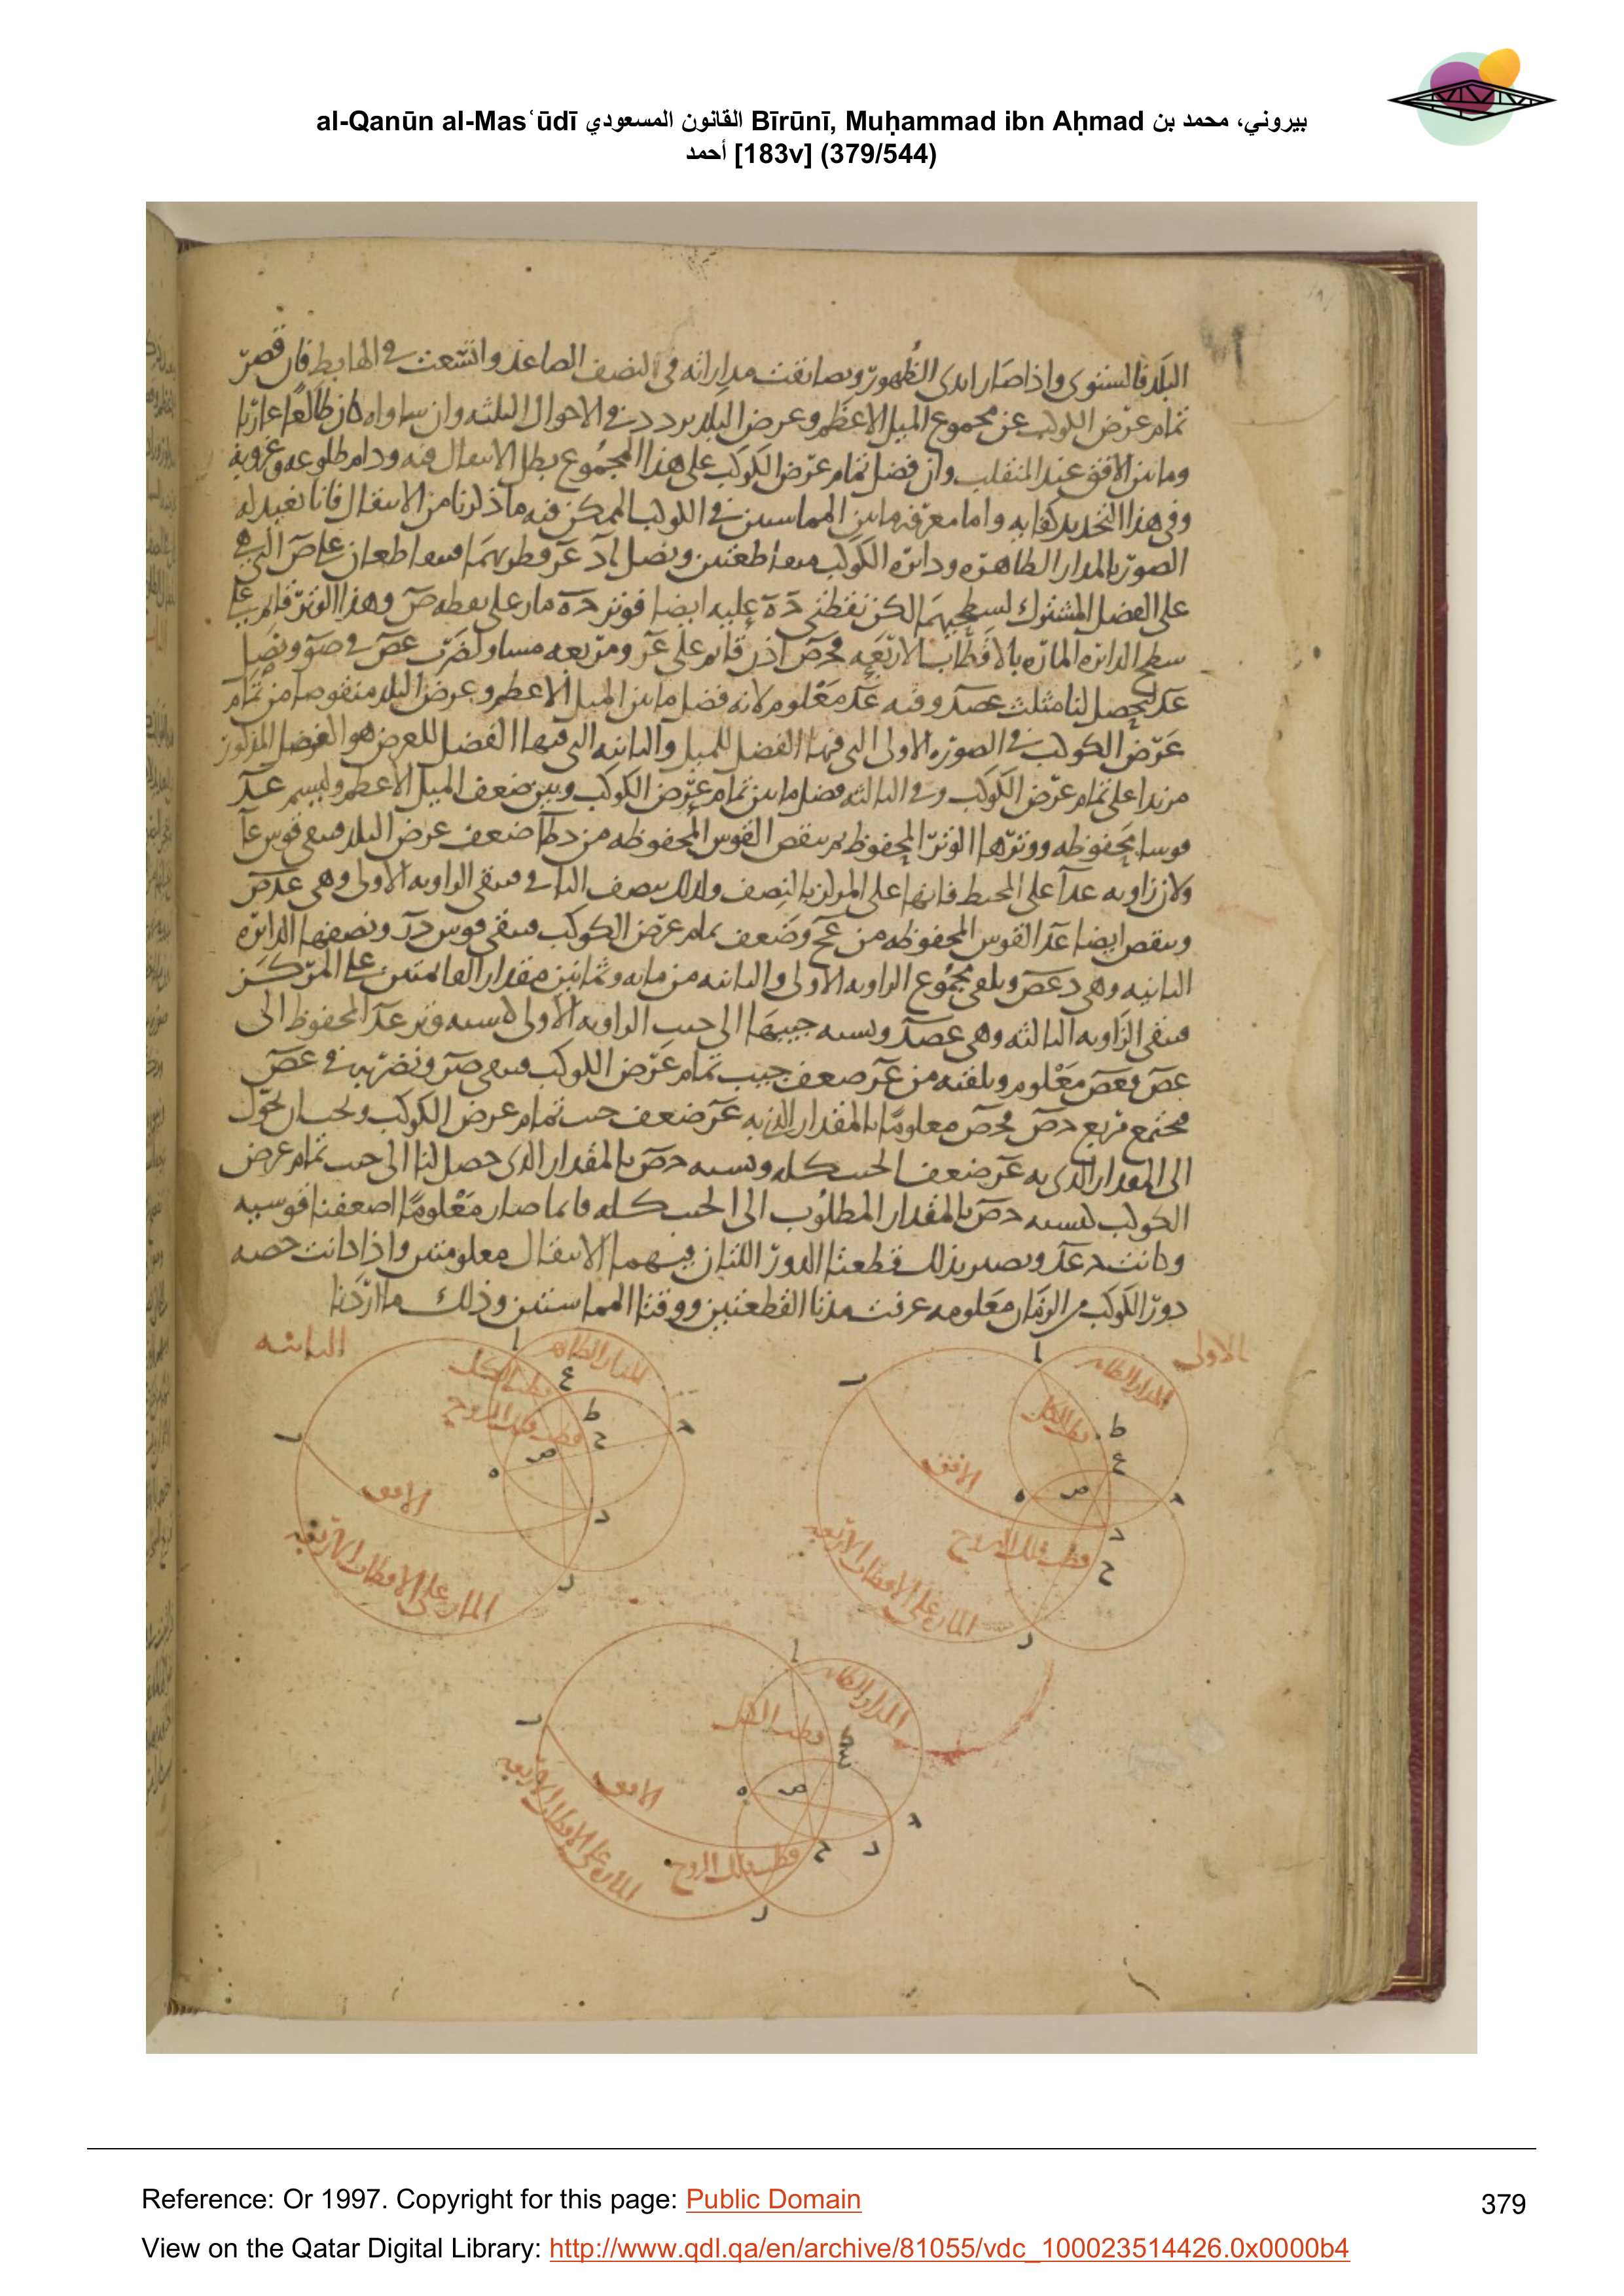 al-Qanūn al-Masʿūdī القانون المسعودي Bīrūnī, Muḥammad ibn Aḥmad بيروني، محمد بن
أحمد [183v] (379/544)
البلد فالستوى واذا صار ابدى الظهور وتضايقت مداراته فى النصف الصاعد واتسعت فى الهابط فان قصر
تمام عرض الكوكب عن مجموع الميل الاعظم وعرض البلد تردد فى الاحوال الثلثه وان ساواه كان طالعا غاربا
وماس الافق عند المنقلب وان فضل تمام عرض الكوكب على هذا المجموع بطل الانتقال فيه ودام طلوعه وغروبه
وفى هذا التحديد كفايه واما معرفه ما بين المماستين فى الكوكب الممكن فيه ما ذكرنا من الانتقال فانا نعيد له
الصور بالمدار الظاهره ودائره الكوكب متقاطعتين ونصل اد عر قطريهما متقاطعان على ص التى هى
على الفصل المشترك لسطحيهما لكن نقطتى ح ه عليه ايضا فوتر ح ه مار على نقطه ص وهذا الوتر قائم على
سطح الدائره الماره بالاقطاب الاربعه فحص اذن قائم على عر ومربعه مساو لضرب عص فى صر ونصل
عد ليحصل لنا مثلث عصد وفيه عد معلوم لانه فضل ما بين الميل الاعظم وعرض البلد منقوصا من تمام
عرض الكوكب فى الصوره الاولى التى فيها الفضل للميل والثانيه التى فيها الفضل للعرض هو الفضل المذكور
مزيدا على تمام عرض الكوكب وفى الثالثه فضل ما بين تمام عرض الكوكب وبين ضعف الميل الاعظم وليسم عد
قوسا محفوظه ووترها الوتر المحفوظ ثم ننقص القوس المحفوظه من دطا ضعف عرض البلد فتبقى قوس عا
ولان زاويه عدا على المحيط فانها على المركز بالنصف ولذلك ننصف الباقى فتبقى الزاويه الاولى وهى عدص
وننقص ايضا عد القوس المحفوظه من عحر ضعف تمام عرض الكوكب فتبقى قوس در ونصفها الزاويه
الثانيه وهى دعص ونلقى مجموع الزاويه الاولى والثانيه من مايه وثمانين مقدار القائمتين على المركز
فتبقى الزاويه الثالثه وهى عصد ونسبه جيبها الى جيب الزاويه الاولى كنسبه وتر عد المحفوظ الى
عص فعص معلوم ونلقيه من عر ضعف جيب تمام عرض الكوكب فتبقى صر ونضربه فى عص
فيجتمع مربع حص فحص معلوما بالمقدار الذى به عر ضعف جيب تمام عرض الكوكب
الى المقدار الذى به عر ضعف الجيب كله ونسبه حص بالمقدار الذى حصل لنا الى جيب تمام عرض
الكوكب كنسبه حص بالمقدار المطلوب الى الجيب كله فاما صار معلوما اضعفنا قوسه
وكانت ونصير بذلك قطعتا الدور اللتان فيهما الانتقال معلومتين واذا كانت حصه
دور الكوكب من الزمان معلومه عرفت مدتا القطعتين ووقتا المماستين وذلك ما اردنا
الاولى
المدار الظاهر
قطب الكل
الافق
قطب فلك البروج
الماره على الاقطاب الاربعه
الثانيه
المدار الظاهر
قطب الكل
قطب فلك البروج
الافق
الماره على الاقطاب الاربعه
المدار الظاهر
قطب الكل
الافق
قطب فلك البروج
الماره على الاقطاب الاربعه
Reference: Or 1997. Copyright for this page: Public Domain
379
View on the Qatar Digital Library: http://www.qdl.qa/en/archive/81055/vdc_100023514426.0x0000b4